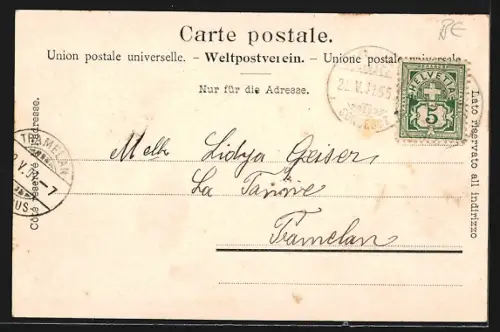 Carte postale.
Union postale universelle. – Weltpostverein. – Unione postale universale.
Nur für die Adresse.
Côté réservé à l'adresse.
Lato riservato all'indirizzo
HELVETIA
5
TRAMELAN
Melle Lidya Geiser
La Tannie
Tramelan
BE